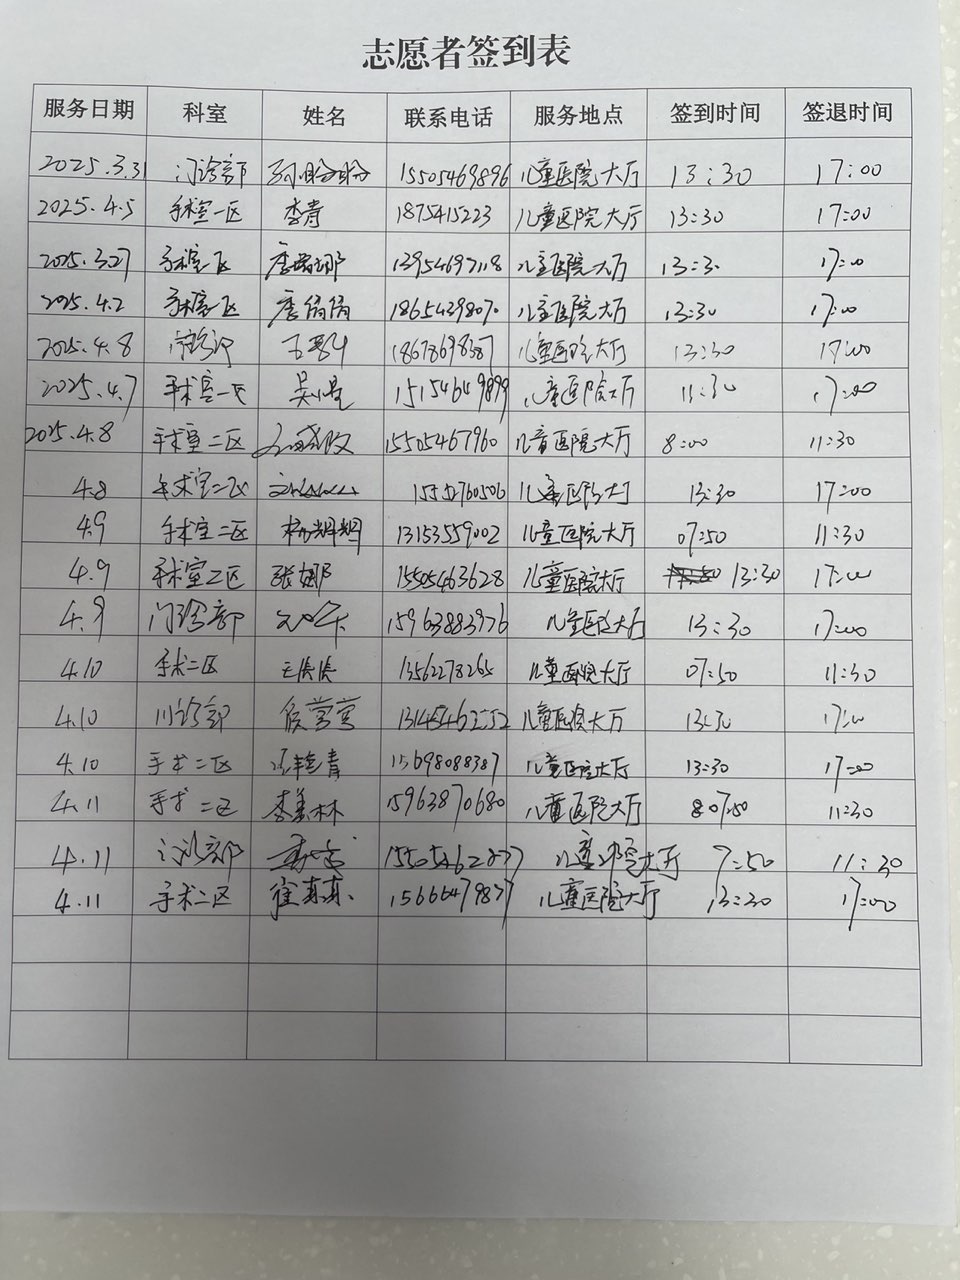 志愿者签到表
服务日期 科室 姓名 联系电话 服务地点 签到时间 签退时间
2025.3.31 门诊部 孙盼盼 15505469896 儿童医院大厅 13:30 17:00
2025.4.5 手术室一区 李青 1875415223 儿童医院大厅 13:30 17:00
2025.3.27 手术室一区 儿童医院大厅 13:30 17:00
2025.4.2 手术室一区 儿童医院大厅 13:30 17:00
2025.4.8 儿童医院大厅 13:30 17:00
2025.4.7 手术室一区 15154649899 儿童医院大厅 17:00
2025.4.8 手术室二区 15505467960 儿童医院大厅 8:00 11:30
4.8 手术室二区 15552760506 儿童医院大厅 13:30 17:00
4.9 手术室二区 杨辉辉 13153559002 儿童医院大厅 07:50 11:30
4.9 手术室二区 张娜 15505463628 儿童医院大厅 13:30 17:00
4.9 门诊部 15963883976 儿童医院大厅 13:30 17:00
4.10 手术二区 13562278265 儿童医院大厅 07:50 11:30
4.10 门诊部 侯莹莹 儿童医院大厅 13:30 17:00
4.10 手术二区 15698088387 儿童医院大厅 13:30 17:00
4.11 手术二区 李美林 15963870680 儿童医院大厅 07:50 11:30
4.11 门诊部 儿童医院大厅 7:50 11:30
4.11 手术二区 崔真真 15666479837 儿童医院大厅 13:30 17:00